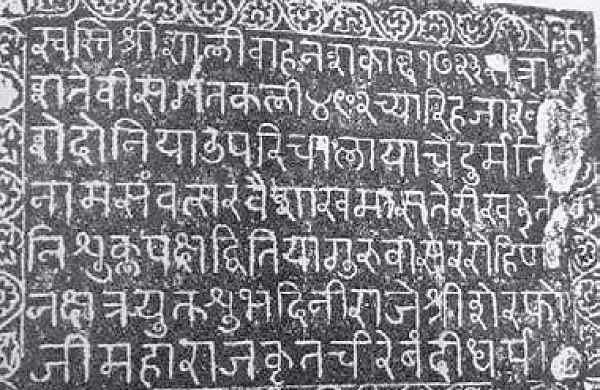 स्वस्ति श्री शालीवाहन शकाब्द १७२३ सत्रा
शते वीस गतकली ४९०२ च्यारिहजार
शे दोनि या उपरि चालायाचें दुर्मति
नांम संवत्सर वैशाख मास तेरीख
शुक्लपक्ष द्वितिया गुरुवासर रोहिणी
नक्षत्रयुक्त शुभदिनी राजेश्री शेरफो
जी महाराज कृत चीरेबंदी